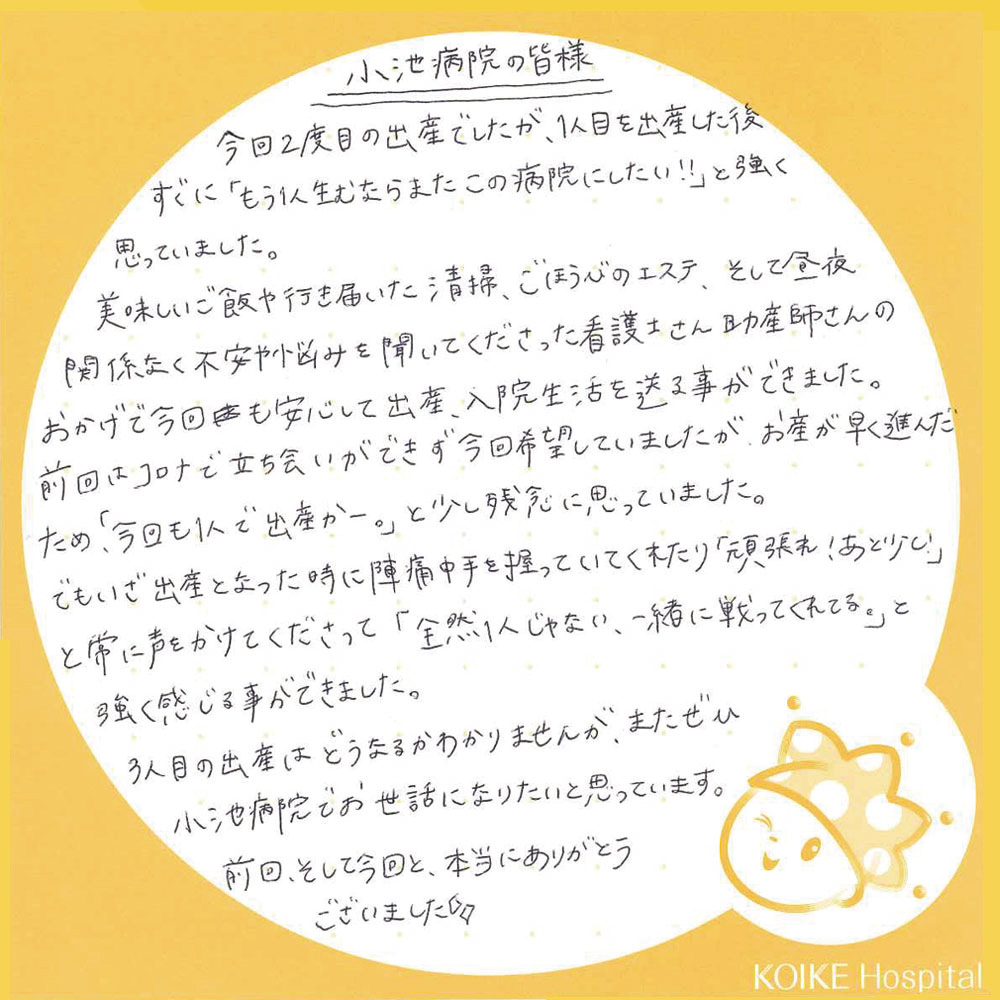 小池病院の皆様
今回2度目の出産でしたが、1人目を出産した後
すぐに「もう1人生むならまたこの病院にしたい!!」と強く
思っていました。
美味しいご飯や行き届いた清掃、ごほうびのエステ、そして昼夜
関係なく不安や悩みを聞いてくださった看護士さん助産師さんの
おかげで今回も安心して出産、入院生活を送る事ができました。
前回はコロナで立ち会いができず今回希望していましたが、お産が早く進んだ
ため、「今回も1人で出産かー。」と少し残念に思っていました。
でもいざ出産となった時に陣痛中手を握っていてくれたり「頑張れ!あと少し!」
と常に声をかけてくださって「全然1人じゃない、一緒に戦ってくれてる。」と
強く感じる事ができました。
3人目の出産はどうなるかわかりませんが、またぜひ
小池病院でお世話になりたいと思っています。
前回、そして今回と、本当にありがとう
ございました
KOIKE Hospital